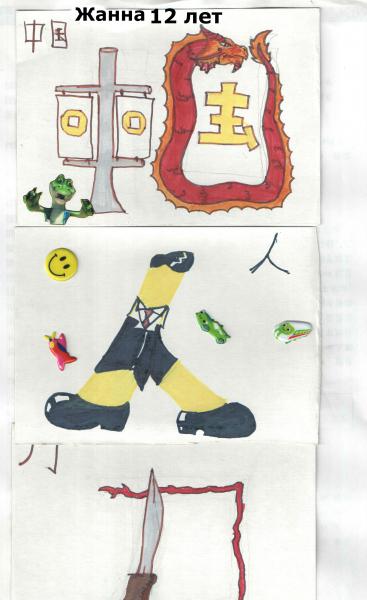 Жанна 12 лет
中国
中国
人